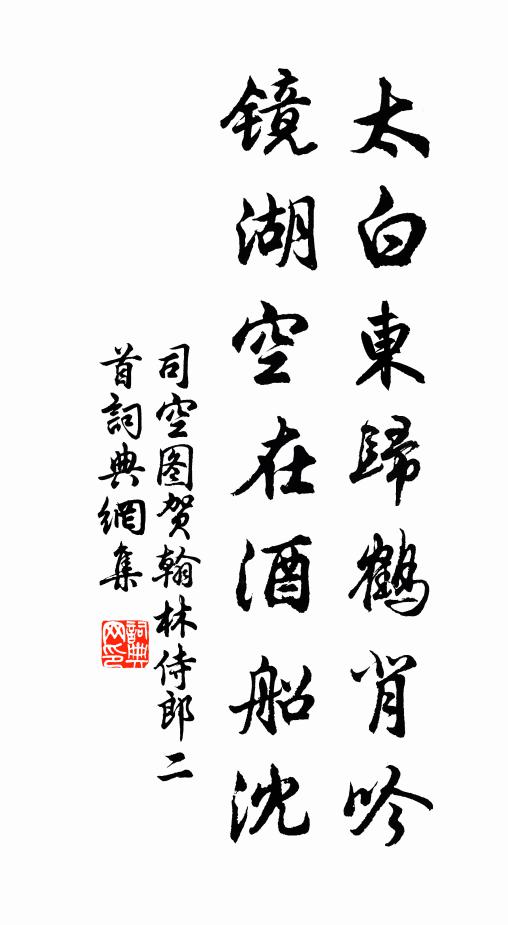 太白東歸鶴背吟
镜湖空在酒船沈
司空图贺翰林侍郎二
首詞典網集
詞典网印